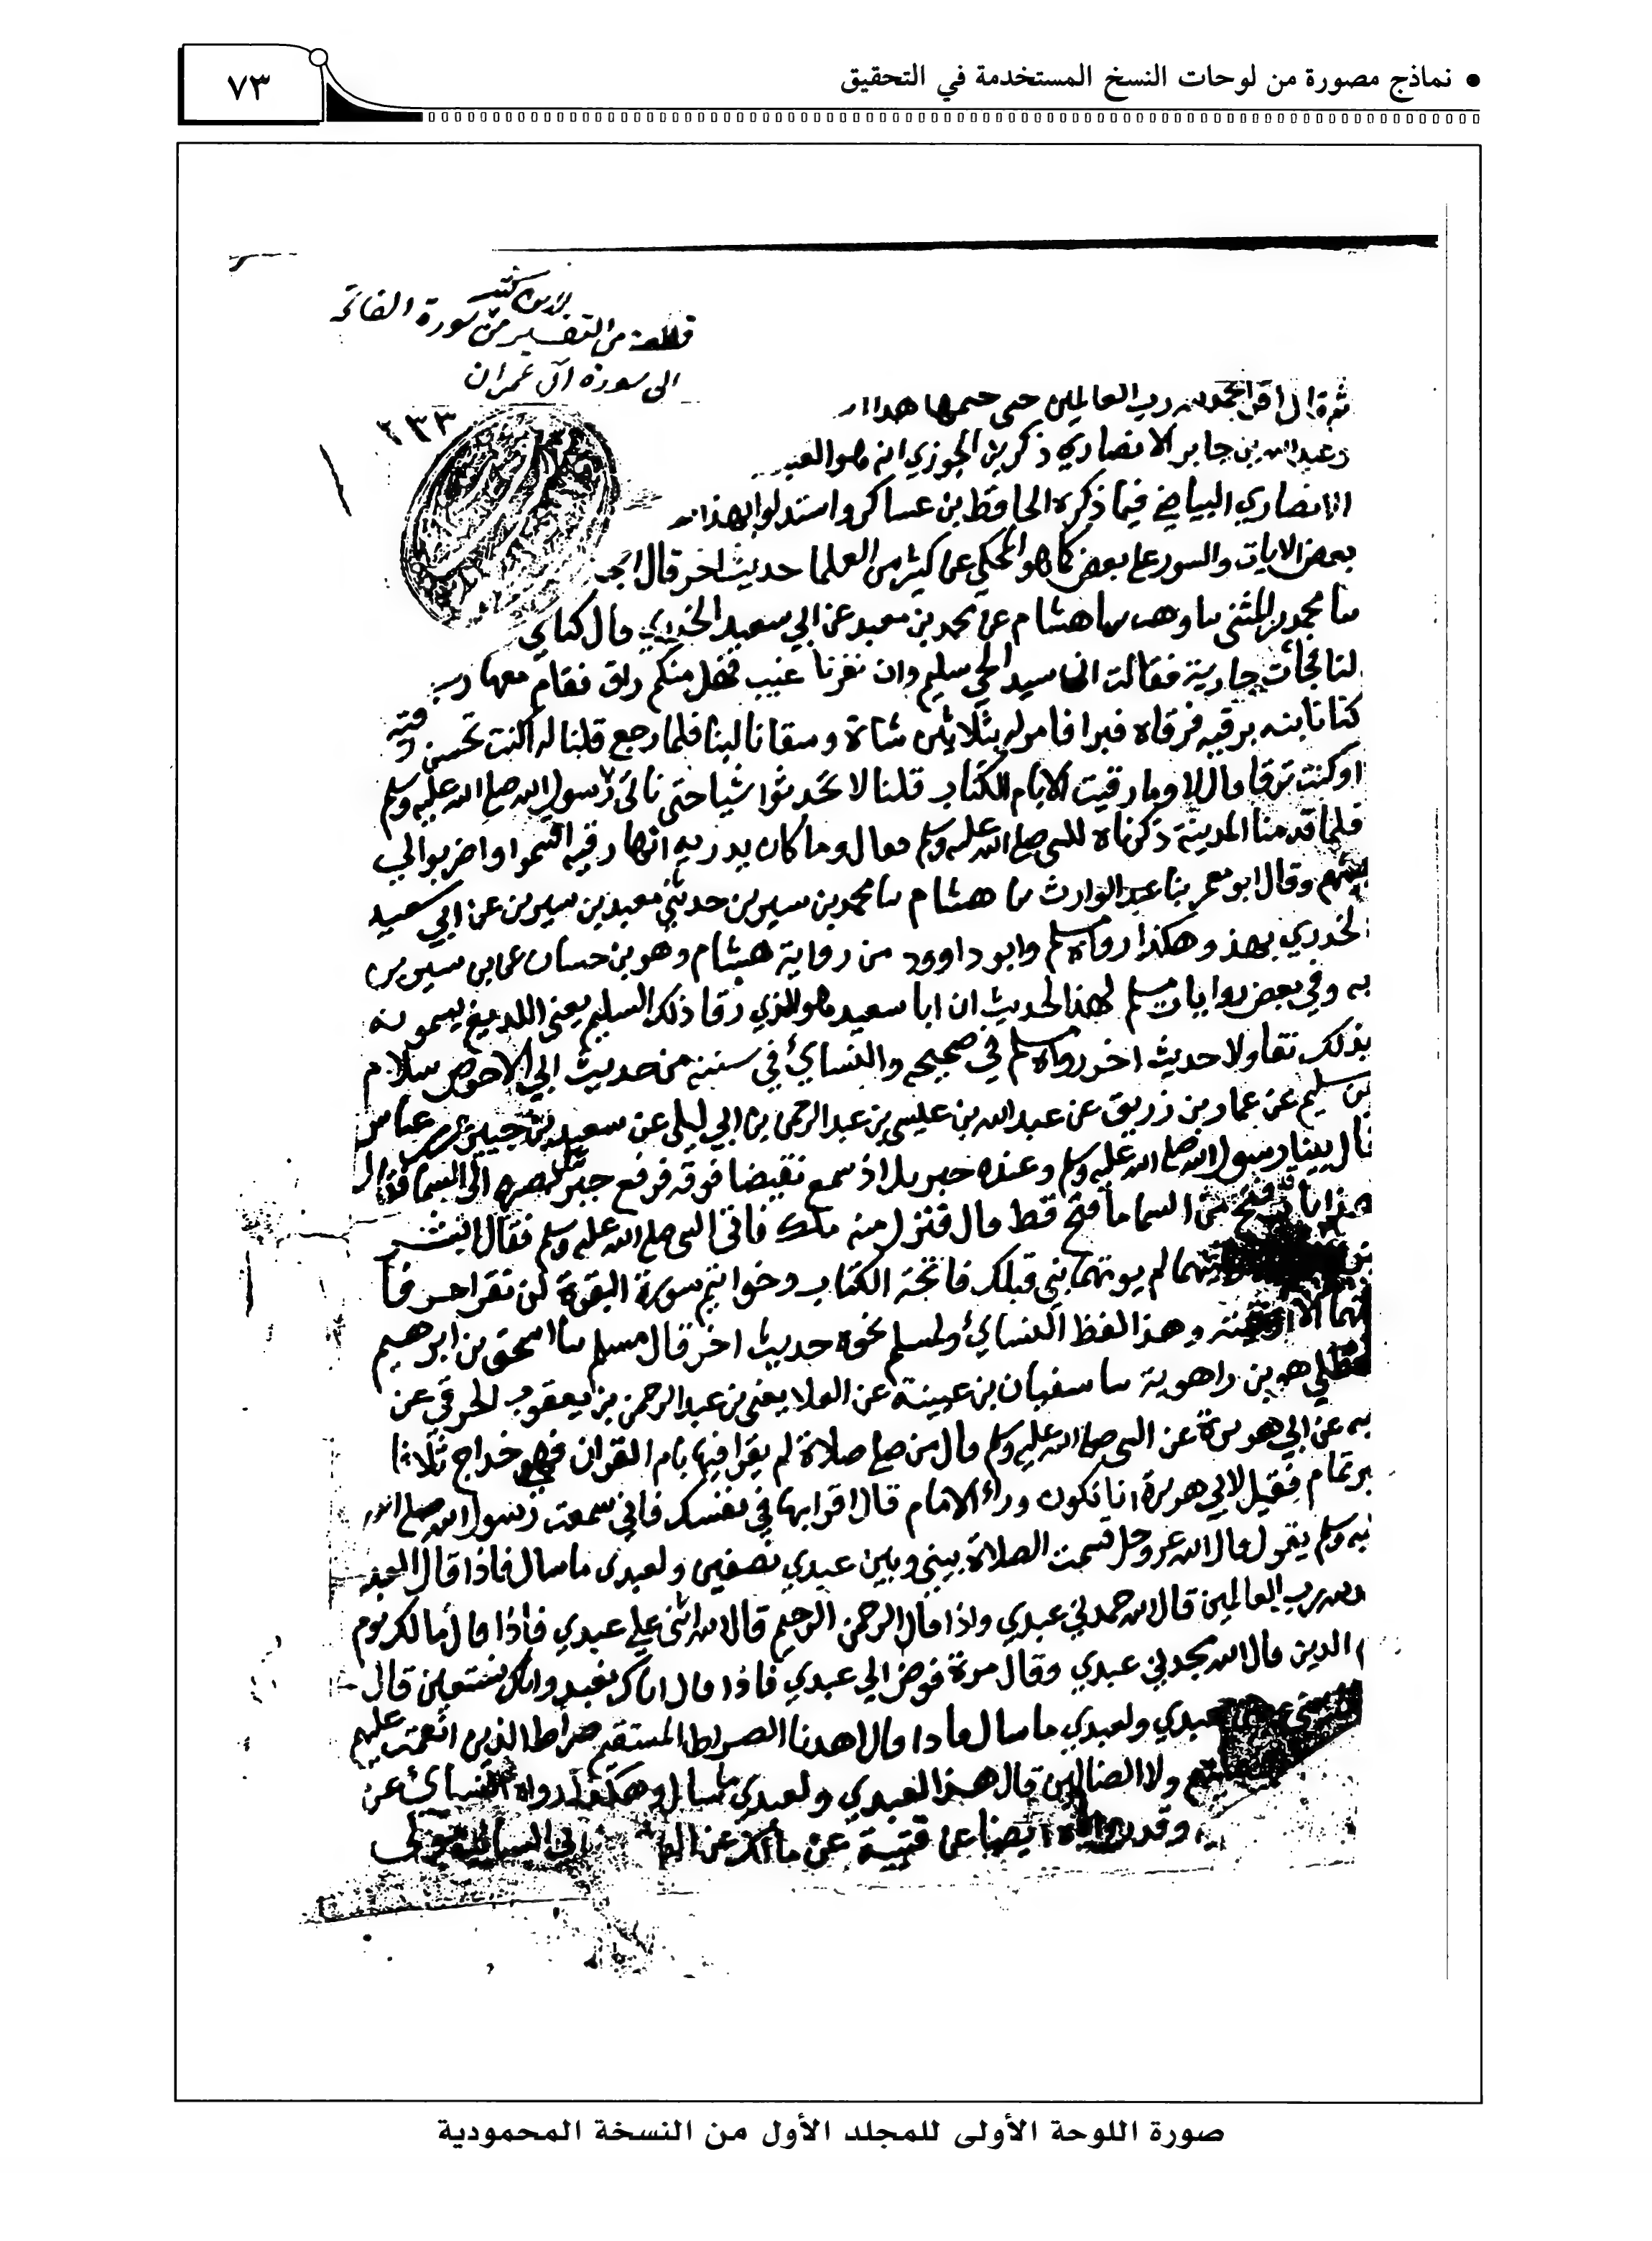 • نماذج مصورة من لوحات النسخ المستخدمة في التحقيق
٧٣
لابن كثير
قطعة من التفسير من سورة الفاتحة
الى سورة آل عمران
٢٣٣
رب العالمين حتى ختمها هدا
وعبدالله بن جابر الانصاري ذكر بن الجوزي انه هو العبد
الانصاري البياضي فيما ذكره الحافظ بن عساكر واستدلوا بهذا
بعض الايات والسور على بعض كما هو المحكي عن كثير من العلما حديث اخر قال
محمد بن المثنى سا وهب سا هشام عن محمد بن معبد عن ابي سعيد الخدري قال كنا في
لنا فجأت جارية فقالت ان سيد الحي سليم وان نفرنا غيب فهل منكم راق فقام معها
كنا نابنه برقيه فرقاه فبرا فامر له بثلاثين شاة وسقانا لبنا فلما رجع قلنا له اكنت تحسن رقيه
او كنت ترقا قال لا وما رقيت الا بام الكتاب قلنا لا تحدثوا شيا حتى ناتى رسول الله صلى الله عليه وسلم
فلما قدمنا المدينة ذكرناه للنبي صلى الله عليه وسلم فقال وما كان يدريه انها رقيه اقسموا واضربوا لي
بسهم وقال ابو معمر بنا عبد الوارث سا هشام سا محمد بن سيرين حدثني معبد بن سيرين عن ابي سعيد
الخدري بهذ وهكذا رواه مسلم وابو داوود من رواية هشام وهو بن حسان عن بن سيرين
به وفي بعض روايات مسلم لهذا الحديث ان ابا سعيد هو الذي رقا ذلك السليم يعني اللديغ يسمونه
بذلك تفاولا حديث اخر رواه مسلم في صحيحه والنسائي في سننه من حديث ابي الاحوص سلام
بن سليم عن عمار بن زريق عن عبدالله بن عليسى بن عبد الرحمن بن ابي ليلى عن سعيد بن جبير عن بن عباس
قال بينا رسول الله صلى الله عليه وسلم وعنده جبريل اذ سمع نقيضا فوقه فرفع جبريل بصره الى السما فقال
هذا باب فتح من السما ما فتح قط قال فنزل منه ملك فاتى النبي صلى الله عليه وسلم فقال ابشر
لم يوتهما نبي قبلك فاتحة الكتاب وخواتيم سورة البقرة لن تقرا حرفا
منهما الا اوتيته وهذا لفظ النسائي ولمسلم نحوه حديث اخر قال مسلم سا اسحق بن ابرهيم
الحنظلي هو بن راهوية سا سفيان بن عيينة عن العلا يعني بن عبد الرحمن بن يعقوب الحرقي عن
به عن ابي هريرة عن النبي صلى الله عليه وسلم قال من صلى صلاة لم يقرا فيها بام القران فهي خداج ثلاثا
غير تمام فقيل لابي هريرة انا نكون وراء الامام قال اقرا بها في نفسك فاني سمعت رسول الله صلى الله
عليه وسلم يقول قال الله عز وجل قسمت الصلاة بيني وبين عبدي نصفين ولعبدي ما سال فاذا قال العبد
رب العالمين قال الله حمدني عبدي واذا قال الرحمن الرحيم قال الله اثنى علي عبدي فاذا قال مالك يوم
الدين قال الله مجدني عبدي وقال مرة فوض الي عبدي فاذا قال اياك نعبد واياك نستعين قال
عبدي ولعبدي ما سال فاذا قال اهدنا الصراط المستقيم صراط الذين انعمت عليهم
ولا الضالين قال هذا لعبدي ولعبدي ما سال وهكذا رواه النسائي عن
وقد رواه ايضا عن قتيبة عن مالك عن ابي السائب مولى
صورة اللوحة الأولى للمجلد الأول من النسخة المحمودية